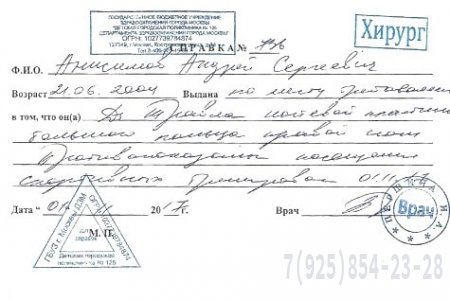 ГОСУДАРСТВЕННОЕ БЮДЖЕТНОЕ УЧРЕЖДЕНИЕ
ЗДРАВООХРАНЕНИЯ ГОРОДА МОСКВЫ
"ДЕТСКАЯ ГОРОДСКАЯ ПОЛИКЛИНИКА № 125
ДЕПАРТАМЕНТА ЗДРАВООХРАНЕНИЯ ГОРОДА МОСКВЫ"
ОГРН: 1027739784874
Хирург
СПРАВКА №
Ф.И.О. Анисимов Андрей Сергеевич
Возраст 21.06.2004 Выдана по месту требования
в том, что он(а) Ds Травма ногтевой пластины
большого пальца правой ноги
Противопоказаны посещения
спортивных тренировок 01.11.17
Дата "01" 2017г. Врач
М.П.
ГБУЗ г. Москвы ДЗМ
ОГРН 1027739784874
для справок
Детская городская поликлиника № 125
ПЕРШИНА Н.А.
Врач
7(925)854-23-28